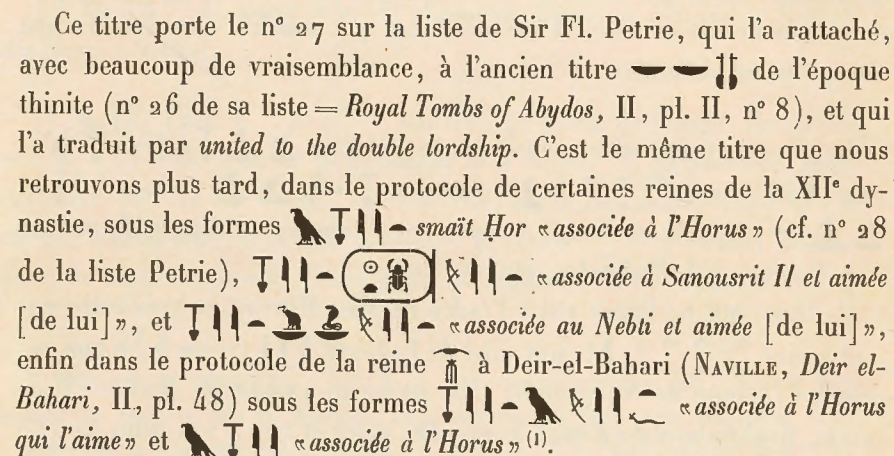 Ce titre porte le n° 27 sur la liste de Sir Fl. Petrie, qui l'a rattaché,
avec beaucoup de vraisemblance, à l'ancien titre de l'époque
thinite (n° 26 de sa liste = Royal Tombs of Abydos, II, pl. II, n° 8), et qui
l'a traduit par united to the double lordship. C'est le même titre que nous
retrouvons plus tard, dans le protocole de certaines reines de la XIIe dy-
nastie, sous les formes smaït Ḥor «associée à l'Horus» (cf. n° 28
de la liste Petrie), «associée à Sanousrit II et aimée
[de lui]», et «associée au Nebti et aimée [de lui]»,
enfin dans le protocole de la reine à Deir-el-Bahari (NAVILLE, Deir el-
Bahari, II, pl. 48) sous les formes «associée à l'Horus
qui l'aime» et «associée à l'Horus» (1).